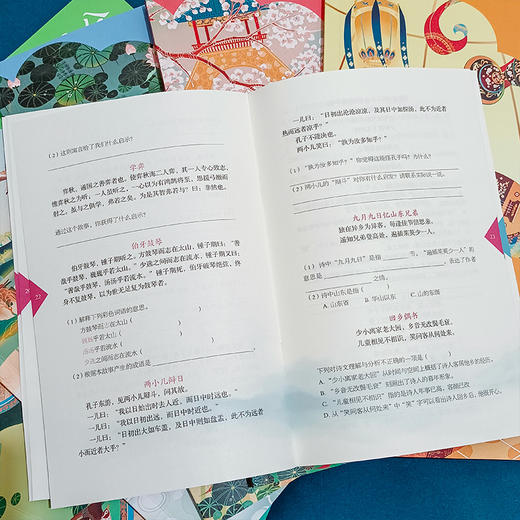 （2）这则寓言给了我们什么启示？
学弈
弈秋，通国之善弈者也。使弈秋诲二人弈，其一人专心致志，
惟弈秋之为听；一人虽听之，一心以为有鸿鹄将至，思援弓缴而
射之。虽与之俱学，弗若之矣。为是其智弗若与？曰：非然也。
通过这个故事，你获得了什么启示？
伯牙鼓琴
伯牙鼓琴，锺子期听之。方鼓琴而志在太山，锺子期曰：“善
哉乎鼓琴，巍巍乎若太山。”少选之间而志在流水，锺子期又曰：“善
哉乎鼓琴，汤汤乎若流水。”锺子期死，伯牙破琴绝弦，终
身不复鼓琴，以为世无足复为鼓琴者。
（1）解释下列彩色词语的意思。
方鼓琴而志在太山（ ）
巍巍乎若太山（ ）
汤汤乎若流水（ ）
少选之间而志在流水（ ）
（2）根据本故事产生的成语是
两小儿辩日
孔子东游，见两小儿辩斗，问其故。
一儿曰：“我以日始出时去人近，而日中时远也。”
一儿曰：“我以日初出远，而日中时近也。”
一儿曰：“日初出大如车盖，及日中则如盘盂，此不为远者
小而近者大乎？”
22
一儿曰：“日初出沧沧凉凉，及其日中如探汤，此不为近者
热而远者凉乎？”
孔子不能决也。
两小儿笑曰：“孰为汝多知乎？”
（1）“孰为汝多知乎？”你觉得这是怪孔子吗？为什么？
（2）两小儿的“辩斗”对你有什么启发？请联系实际说一说。
九月九日忆山东兄弟
独在异乡为异客，每逢佳节倍思亲。
遥知兄弟登高处，遍插茱萸少一人。
（1）诗中“九月九日”是指 节，“遍插茱萸少一人”的
意思是 ，表达了作者
之情。
（2）诗中山东是指（ ）
A. 山东省 B. 华山以东 C. 山的东面
回乡偶书
少小离家老大回，乡音无改鬓毛衰。
儿童相见不相识，笑问客从何处来。
下列对诗文理解与分析不正确的一项是（ ）
A. “少小离家老大回”从时间与空间上概括了诗人客居他乡的经历。
B. “乡音无改鬓毛衰”刻画出了诗人的暮年形象。
C. “儿童相见不相识”指的是诗人年事已高，容颜已改
D. 从“笑问客从何处来”中“笑”字可以看出诗人回乡后，他很开心。
23